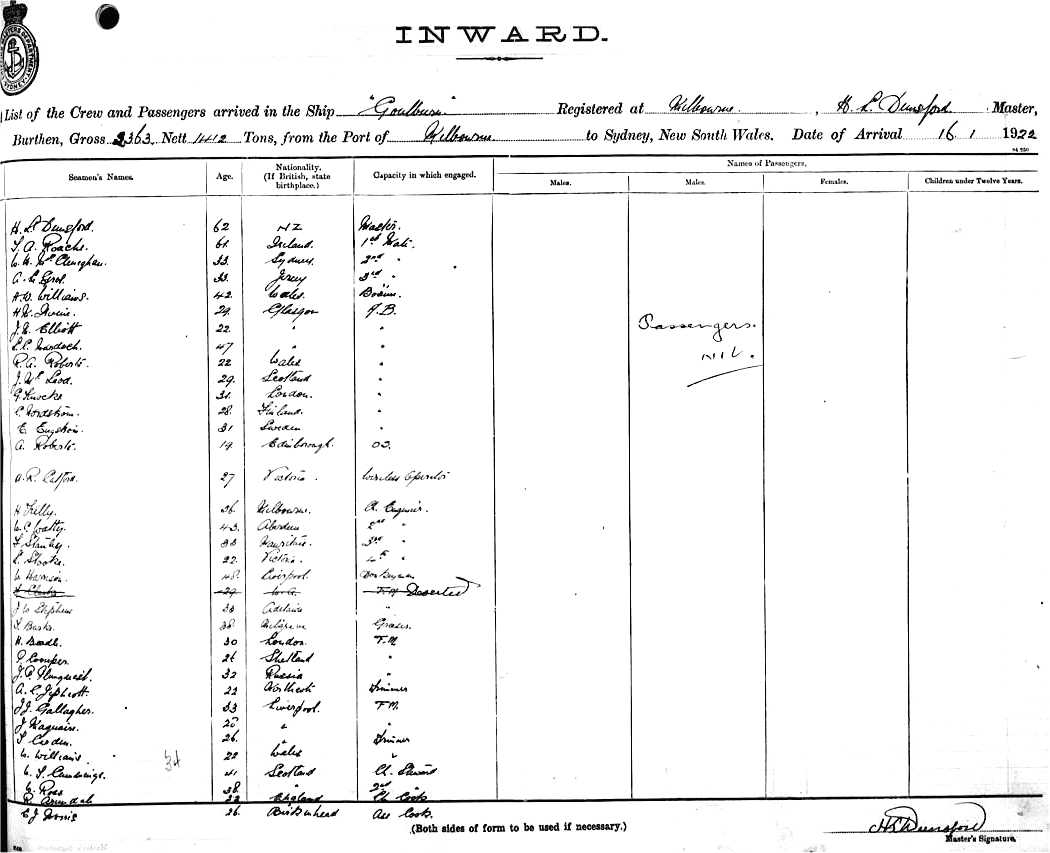 INWARD.
List of the Crew and Passengers arrived in the Ship "Goulburn" Registered at Melbourne, H. L. Dunsford Master,
Burthen, Gross 2363 Nett 1442 Tons, from the Port of Melbourne to Sydney, New South Wales. Date of Arrival 16 1 1922
Seamen's Names. Age. Nationality, (If British, state birthplace.) Capacity in which engaged. Names of Passengers.
Males. Males. Females. Children under Twelve Years.
H. L. Dunsford. 62 NZ Master.
T. A. Roache. 61 Ireland. 1st Mate
33 Sydney. 2nd "
33 Jersey 3rd "
H. W. Williams. 42 Wales. Bosun.
29 Glasgow A.B.
J. Elliott 22 " "
Murdoch. 47 " "
R. A. Roberts. 22 Wales "
J. McLeod. 29. Scotland "
G. Knocke 31. London. "
C. Nordstrom. 28. Finland. "
E. Engstrom. 31 Sweden "
A. Roberts. 19 Edinborough. OS.
27 Victoria. Wireless Operator
H. Kelly. 36 Melbourne. Ch. Engineer.
43. Aberdeen 2nd "
Stanley. 38 Mauritius. 3rd "
22. Victoria. 4th "
W. Harrison. 48. Liverpool. Donkeyman
Clarke 29 W. A. F.M. Deserted
J. W. Stephens 33 Adelaide "
38 Greaser.
H. Beadle. 30 London. F.M.
26 Shetland "
32 Russia "
A. C. Jephcott. 22 Northcote Trimmer
J. J. Gallagher. 33 Liverpool. F.M.
J. Maguire. 28 " "
26. " Trimmer
W. Williams. 22 Wales "
41 Scotland Ch. Steward
Ross 38. " 2nd "
R. Arundale 22 England Ch. Cook
26. Birkenhead Ass Cook.
Passengers.
NIL.
34
(Both sides of form to be used if necessary.)
H L Dunsford
Master's Signature.